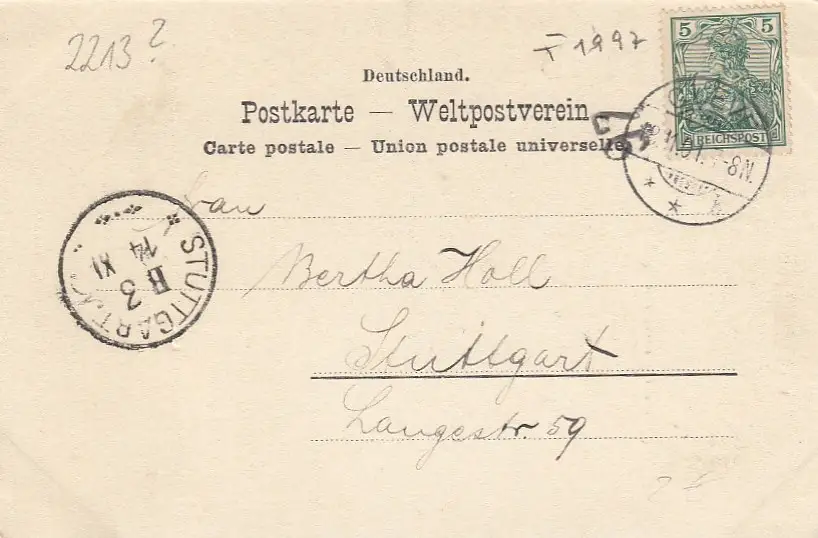 2213?
T 1997
5 5
REICHSPOST
Deutschland.
Postkarte — Weltpostverein
Carte postale — Union postale universelle
Frau
Bertha Holl
Stuttgart
Langestr. 59
STUTTGART
14 XI
3